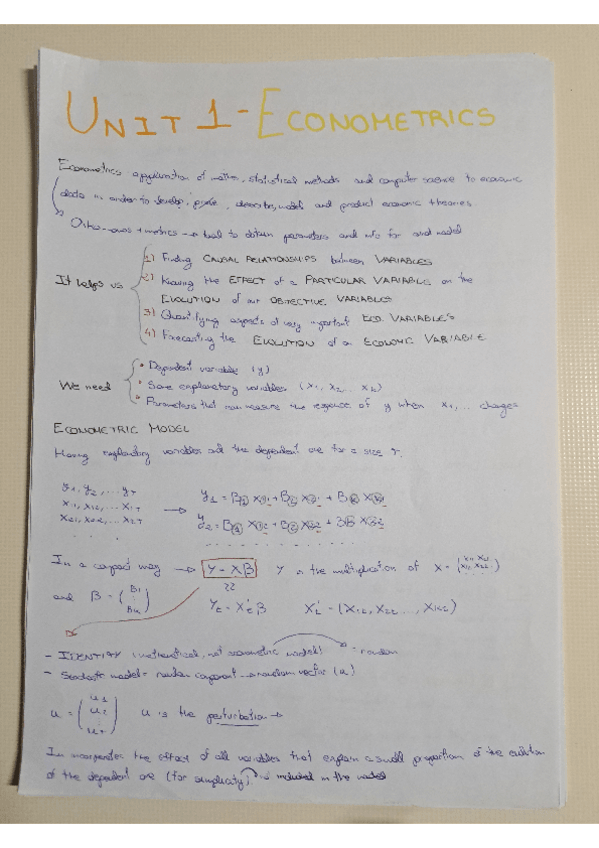 UNIT 1 - ECONOMETRICS
Econometrics: application of maths, statistical methods and computer science to economic
data in order to develop, prove, describe, model and predict economic theories.
metrics → tool to obtain parameters and info for and model
It helps us
1) Finding CAUSAL RELATIONSHIPS between VARIABLES
2) Knowing the EFFECT of a PARTICULAR VARIABLE on the
EVOLUTION of our OBJECTIVE VARIABLES
3) Quantifying aspects of very important ECO. VARIABLE'S
4) Forecasting the EVOLUTION of an ECONOMIC VARIABLE
We need
• Dependent variable (y)
• Some explanatory variables (x1, x2... xk)
• Parameters that can measure the response of y when x1,... changes
ECONOMETRIC MODEL
Having explanatory variables and the dependent one for a size T.
y1, y2, ... yT
x11, x12, ... x1T
x21, x22, ... x2T
In a compact way → Y = Xβ Y is the multiplication of X =
and β = (β1 : βk)
Yt = X't β
- IDENTITY (mathematical, not econometric model) random
- model = random component → random vector (u)
u = (u1 u2 : uT) u is the perturbation →
Im incorporates the effect of all variables that explain a small proportion of the evolution
of the dependent one (for simplicity) is included in the model